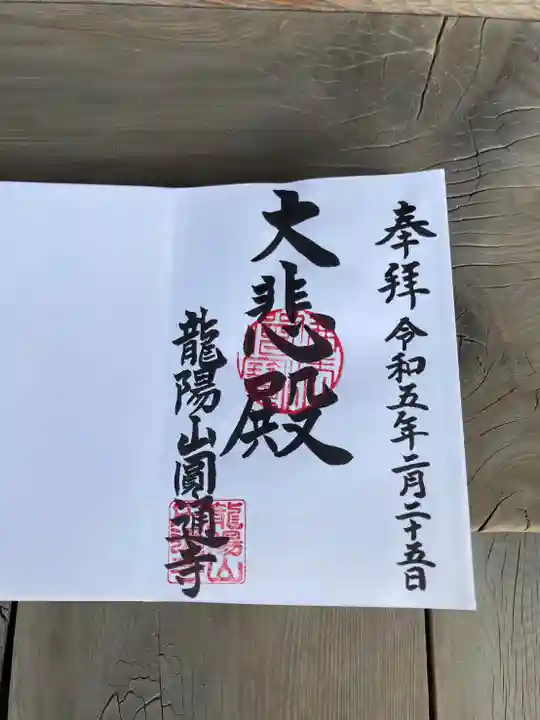 奉拝 令和五年二月二十五日
大悲殿
龍陽山圓通寺
龍陽山